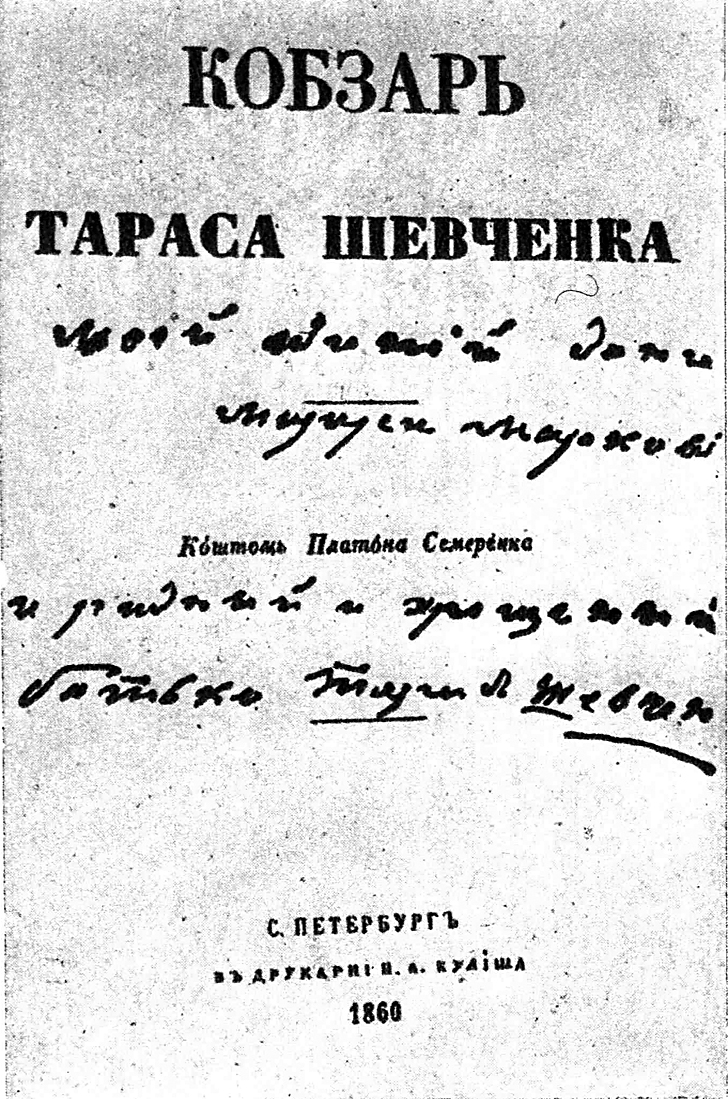 КОБЗАРЬ
ТАРАСА ШЕВЧЕНКА
моій єдиній дони
Маруси Маркові
Ко́штомъ Плато́на Семере́нка
и ридный и хрещеный
батько Тарас Шевчен
С. ПЕТЕРБУРГЪ
ВЪ ДРУКАРНІ П. А. КУЛІША
1860